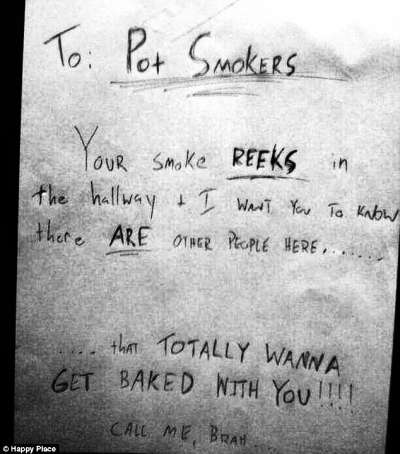 To: Pot SMOKERS
YOUR SMOKE REEKS in
the hallway + I WANT YOU TO KNOW
there ARE OTHER PEOPLE HERE.......
.... thAT TOTALLY WANNA
GET BAKED WITH YOU!!!!
CALL ME, BRAH...
© Happy Place